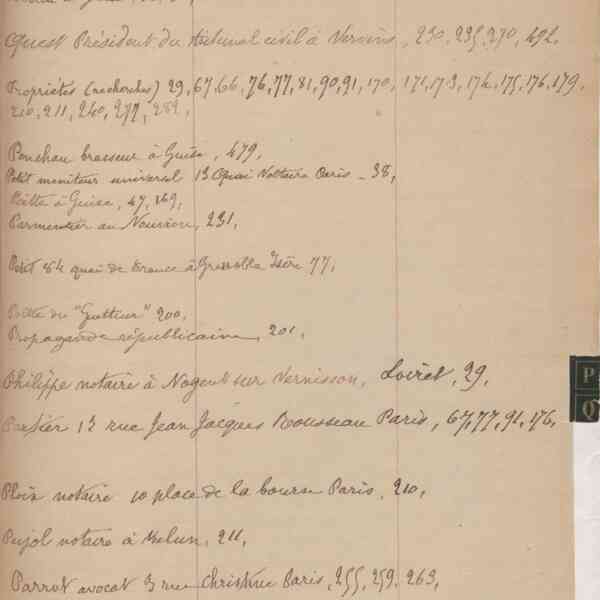 Quest Président du tribunal civil à Vervins, 230, 235, 270, 492,
Propriétés (recherches) 29, 67, 66, 76, 77, 81, 90, 91, 170, 171, 173, 174, 175, 176, 179,
210, 211, 240, 277, 289,
Ponchau brasseur à Guise, 479,
Petit moniteur universel 13 Quai Voltaire Paris - 38,
à Guise, 47, 169,
Parmentier au Nouvion, 231,
Petit 84 quai de France à Grenoble Isère 77,
du "Glutteur" 200,
Propagande républicaine, 201,
Philippe notaire à Nogent sur Vernisson, Loiret, 29,
12 rue Jean Jacques Rousseau Paris, 67, 77, 91, 176,
Ploix notaire 10 place de la bourse Paris, 210,
Pujol notaire à Melun, 211,
Parrot avocat 3 rue Christine Paris, 255, 259, 263,
P
Q